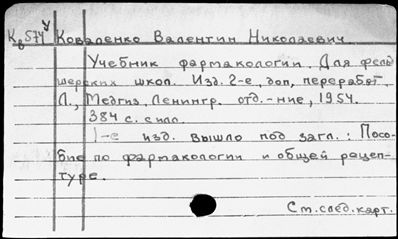 Кв574 Коваленко Валентин Николаевич
Учебник фармакологии. Для фель
шерских школ. Изд. 2-е, доп, переработ.
Л., Медгиз, Ленингр. отд.-ние, 1954.
384 с. с илл.
1-е изд. вышло под загл.: Посо-
бие по фармакологии и общей рецеп-
туре.
См. след. карт.